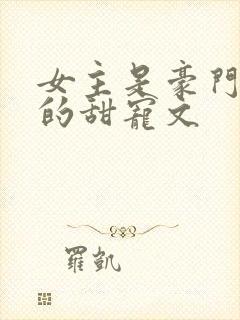 女主是豪門
的甜寵文
羅凱